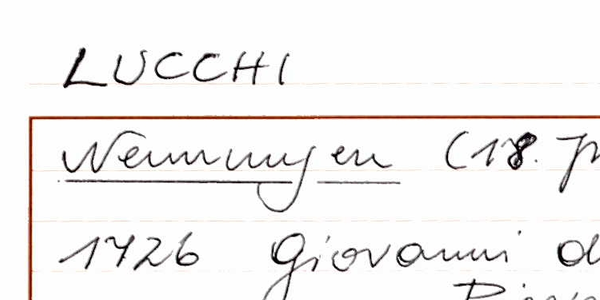 LUCCHI
Nennungen (18. J
1726 Giovanni d